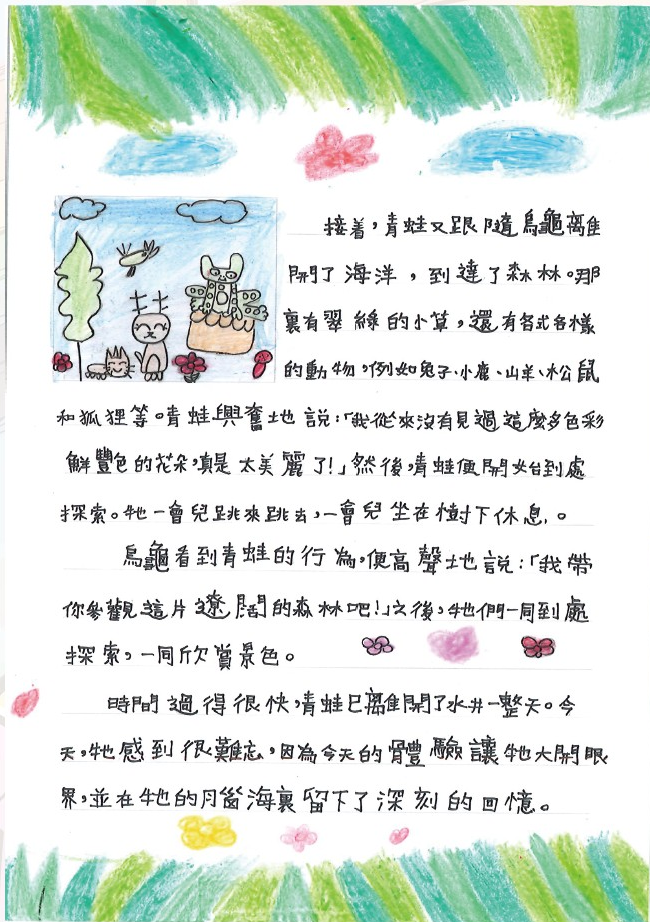 接着，青蛙又跟隨烏龜離
開了海洋，到達了森林。那
裏有翠綠的小草，還有各式各樣
的動物，例如兔子、小鹿、山羊、松鼠
和狐狸等。青蛙興奮地說：「我從來沒有見過這麼多色彩
鮮豔色的花朵，真是太美麗了！」然後，青蛙便開始到處
探索。牠一會兒跳來跳去，一會兒坐在樹下休息。
烏龜看到青蛙的行為，便高聲地說：「我帶
你參觀這片遼闊的森林吧！」之後，牠們一同到處
探索，一同欣賞景色。
時間過得很快，青蛙已離開了水井一整天。今
天，牠感到很難忘，因為今天的體驗讓牠大開眼
界，並在牠的腦海裏留下了深刻的回憶。